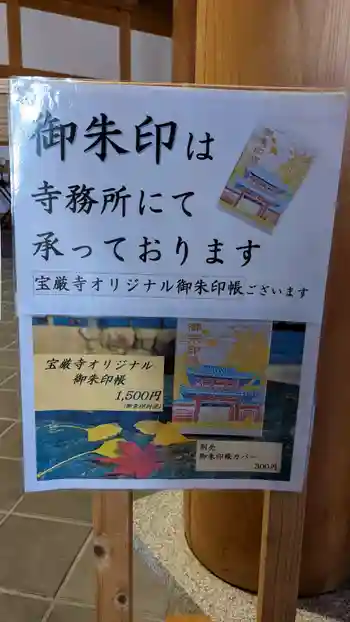 御朱印は
寺務所にて
承っております
宝厳寺オリジナル御朱印帳ございます
御朱印帳
宝厳寺オリジナル
御朱印帳
1,500円
御朱印
別売
御朱印帳カバー
300円